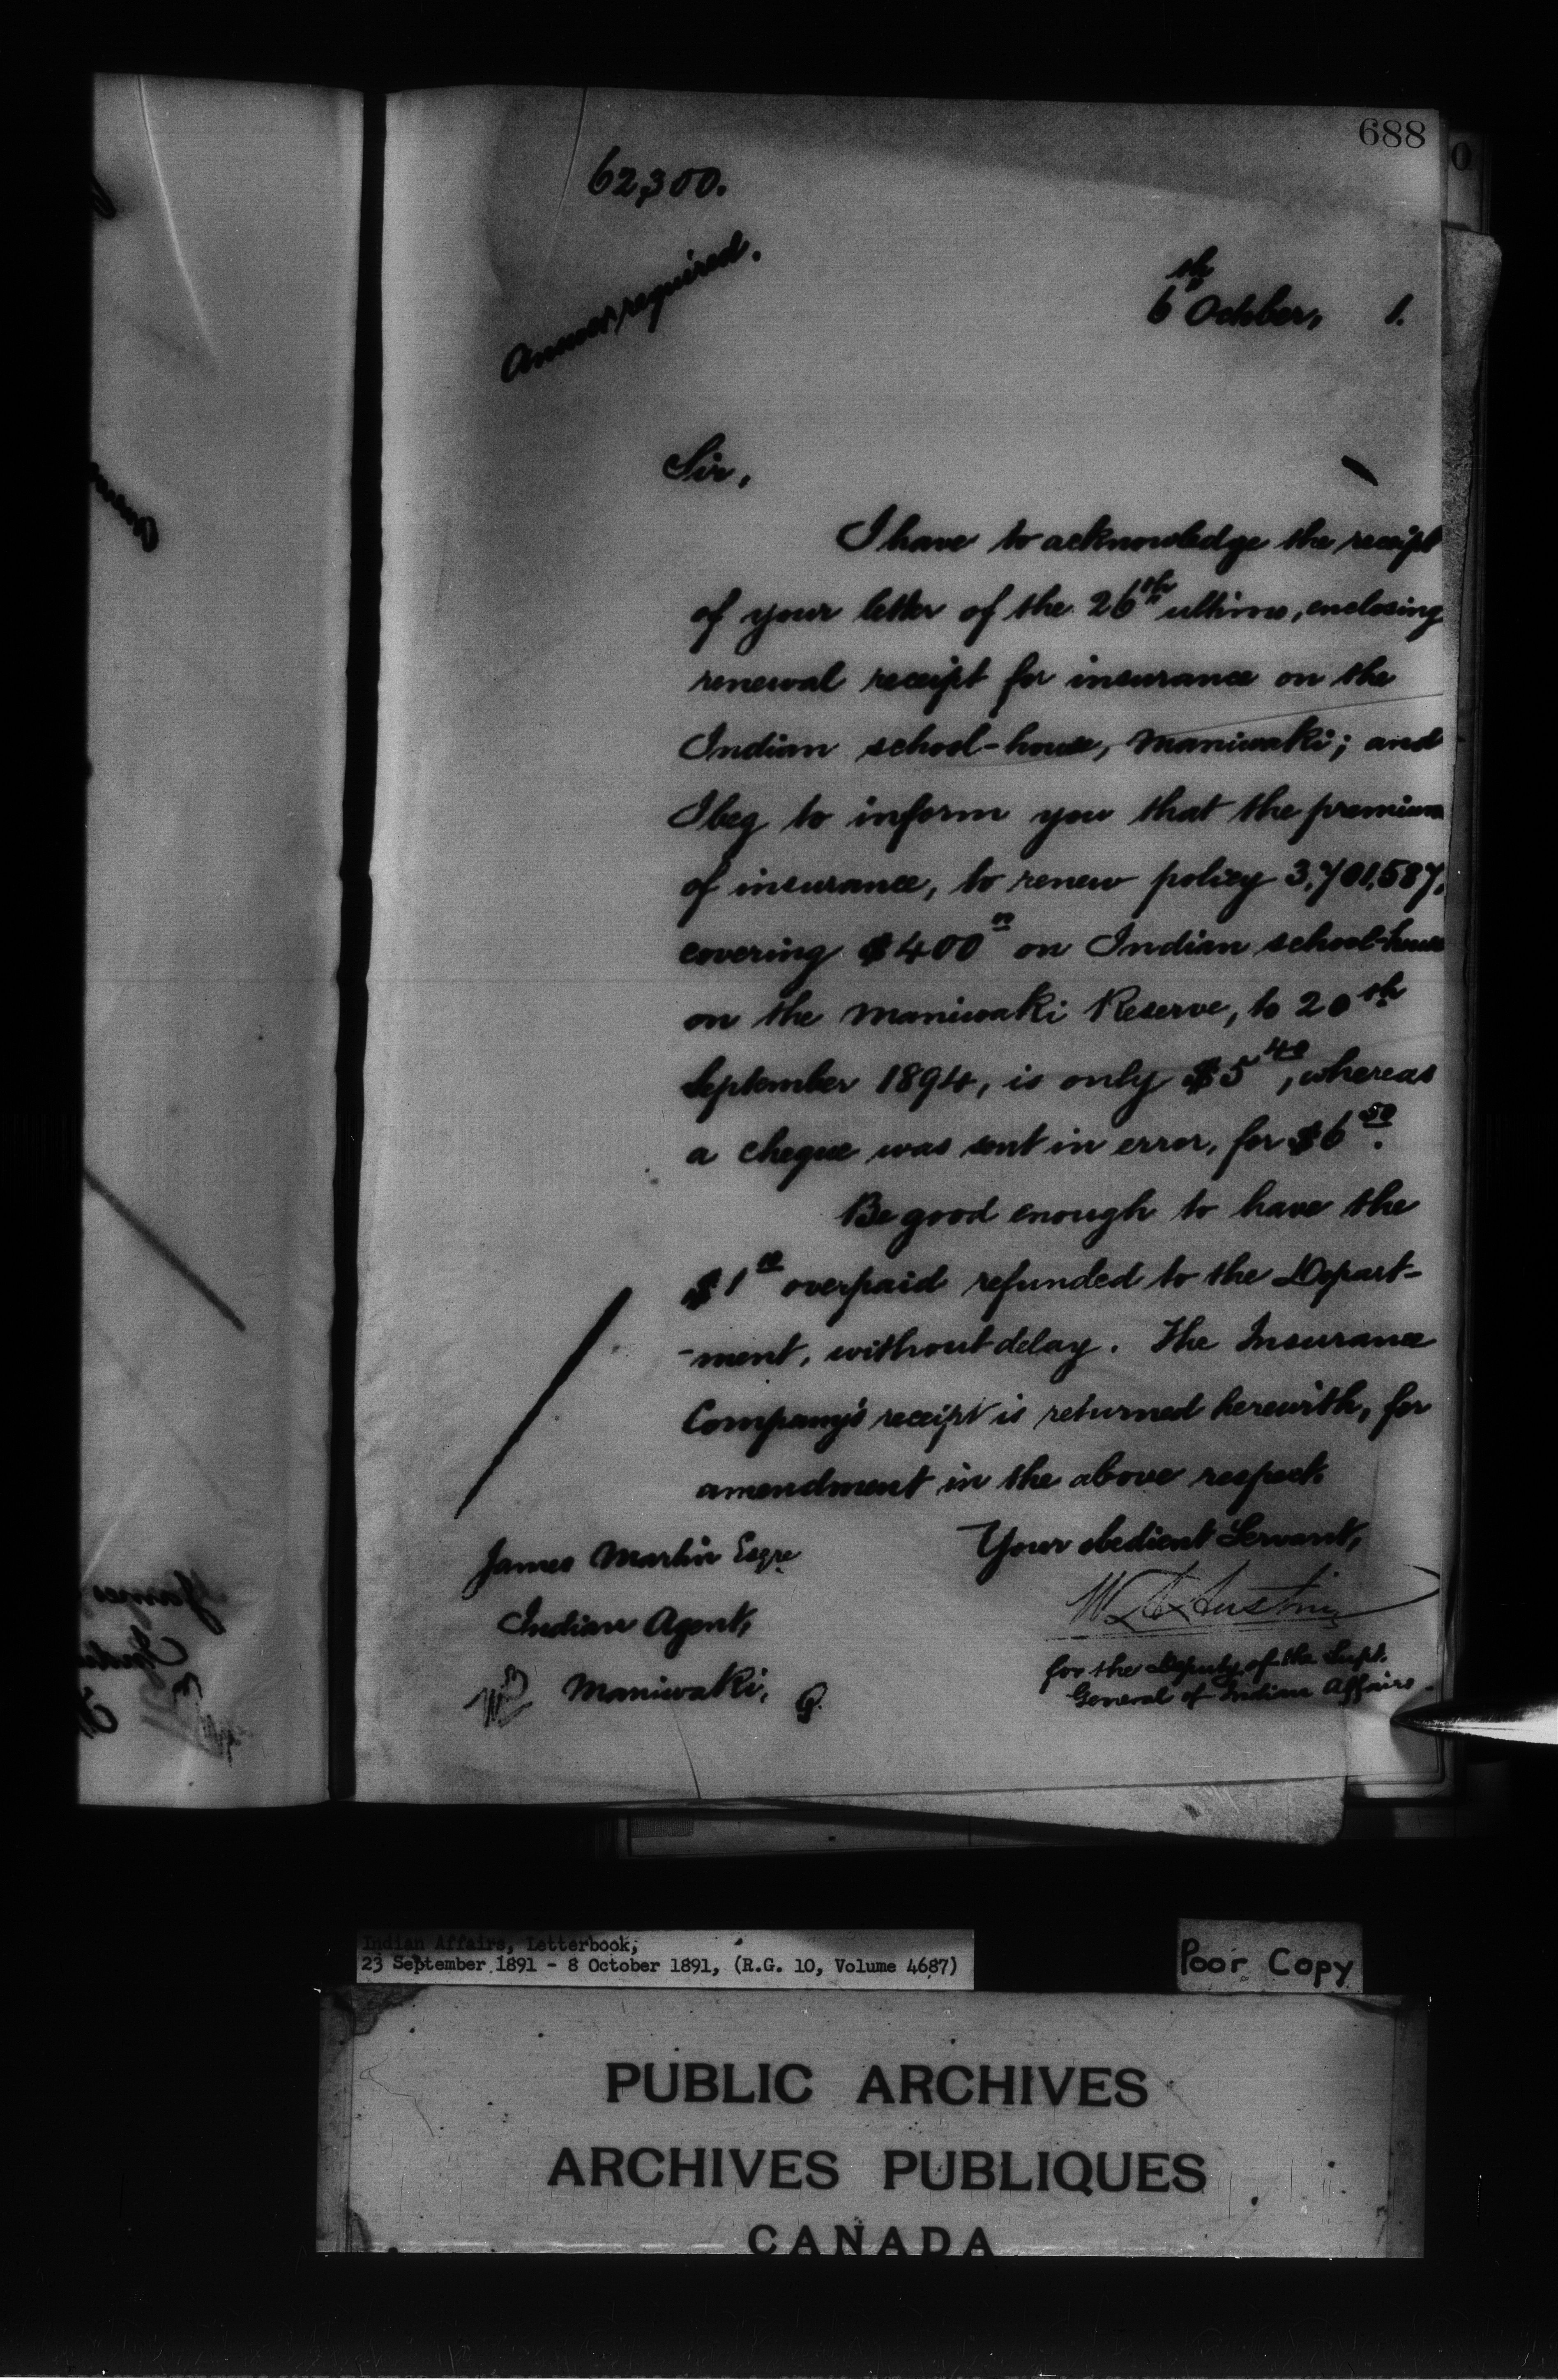 688
62,300.
Answer required.
6th October, 1.
Sir,
I have to acknowledge the receipt
of your letter of the 26th ultimo, enclosing
renewal receipt for insurance on the
Indian school-house, Maniwaki; and
I beg to inform you that the premium
of insurance, to renew policy 3,701,587,
covering $400 00 on Indian school-house
on the Maniwaki Reserve, to 20th
September 1894, is only $5 40, whereas
a cheque was sent in error, for $6 50.
Be good enough to have the
$1 10 overpaid refunded to the Depart-
-ment, without delay. The Insurance
Company's receipt is returned herewith, for
amendment in the above respect.
Your obedient Servant,
James Martin Esqre
Indian Agent,
Maniwaki, Q.
W A Austin
for the Deputy of the Supt.
General of Indian Affairs
Indian Affairs, Letterbook,
23 September 1891 - 8 October 1891, (R.G. 10, Volume 4687)
Poor Copy
PUBLIC ARCHIVES
ARCHIVES PUBLIQUES
CANADA